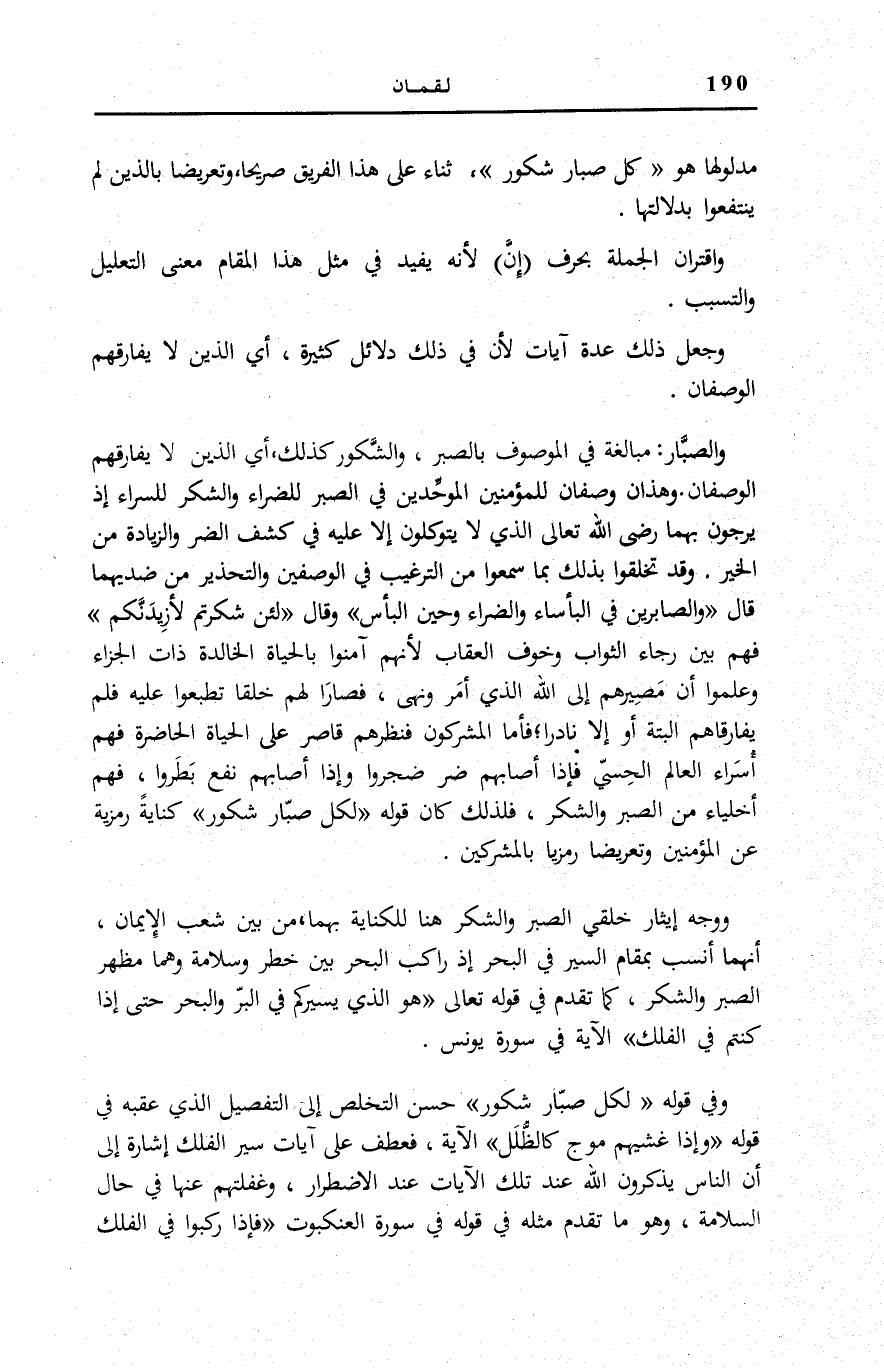 190
لقمان
مدلولها هو « كل صبار شكور »، ثناء على هذا الفريق صريحا،وتعريضا بالذين لم
ينتفعوا بدلالتها .
واقتران الجملة بحرف (إِنَّ) لأنه يفيد في مثل هذا المقام معنى التعليل
والتسبب .
وجعل ذلك عدة آيات لأن في ذلك دلائل كثيرة ، أي الذين لا يفارقهم
الوصفان .
والصبَّار: مبالغة في الموصوف بالصبر ، والشَّكور كذلك،أي الذين لا يفارقهم
الوصفان.وهذان وصفان للمؤمنين الموحِّدين في الصبر للضراء والشكر للسراء إذ
يرجون بهما رضى الله تعالى الذي لا يتوكلون إلا عليه في كشف الضر والزيادة من
الخير . وقد تخلقوا بذلك بما سمعوا من الترغيب في الوصفين والتحذير من ضديهما
قال «والصابرين في البأساء والضراء وحين البأس» وقال «لئن شكرتم لأزِيدَنَّكم »
فهم بين رجاء الثواب وخوف العقاب لأنهم آمنوا بالحياة الخالدة ذات الجزاء
وعلموا أن مَصِيرهم إلى الله الذي أمَر ونهى ، فصارَا لهم خلقا تطبعوا عليه فلم
يفارقاهم البتة أو إلا نادرا؛فأما المشركون فنظرهم قاصر على الحياة الحاضرة فهم
أُسَراء العالم الحِسيّ فإذا أصابهم ضر ضجروا وإذا أصابهم نفع بَطَروا ، فهم
أخلياء من الصبر والشكر ، فلذلك كان قوله «لكل صبّار شكور» كنايةً رمزية
عن المؤمنين وتعريضا رمزيا بالمشركين .
ووجه إيثار خلقي الصبر والشكر هنا للكناية بهما،من بين شعب الإِيمان ،
أنهما أنسب بمقام السير في البحر إذ راكب البحر بين خطر وسلامة وهما مظهر
الصبر والشكر ، كما تقدم في قوله تعالى «هو الذي يسيركم في البرّ والبحر حتى إذا
كنتم في الفلك» الآية في سورة يونس .
وفي قوله « لكل صبّار شكور» حسن التخلص إلى التفصيل الذي عقبه في
قوله «وإذا غشيهم موج كالظُّلَل» الآية ، فعطف على آيات سير الفلك إشارة إلى
أن الناس يذكرون الله عند تلك الآيات عند الاضطرار ، وغفلتهم عنها في حال
السلامة ، وهو ما تقدم مثله في قوله في سورة العنكبوت «فإذا ركبوا في الفلك